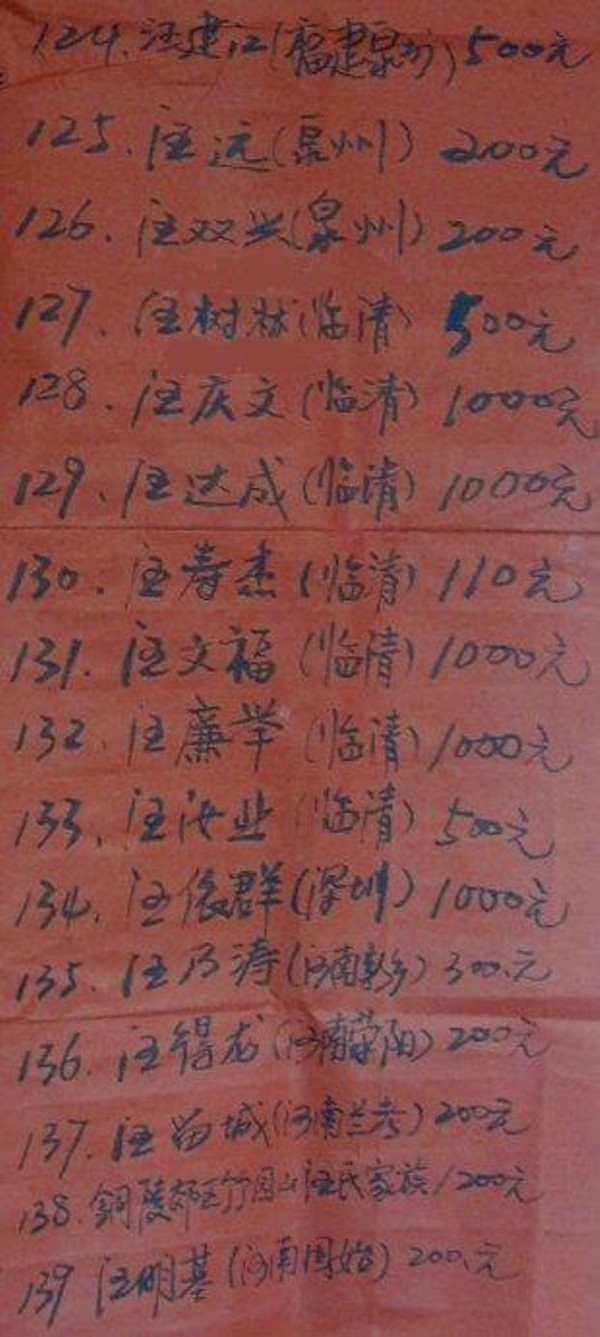 124. 汪建江(福建泉州)500元
125. 汪远(泉州)200元
126. 汪双兴(泉州)200元
127. 汪树林(临清)500元
128. 汪庆文(临清)1000元
129. 汪达成(临清)1000元
130. 汪寿杰(临清)110元
131. 汪文福(临清)1000元
132. 汪廉举(临清)1000元
133. 汪汝业(临清)500元
134. 汪俊群(深圳)1000元
135. 汪乃涛(河南新乡)300.元
136. 汪得龙(河南荥阳)200元
137. 汪留城(河南兰考)200元
138. 銅陵郊区竹园山汪氏家族1200元
139 汪明基(河南固始)200.元